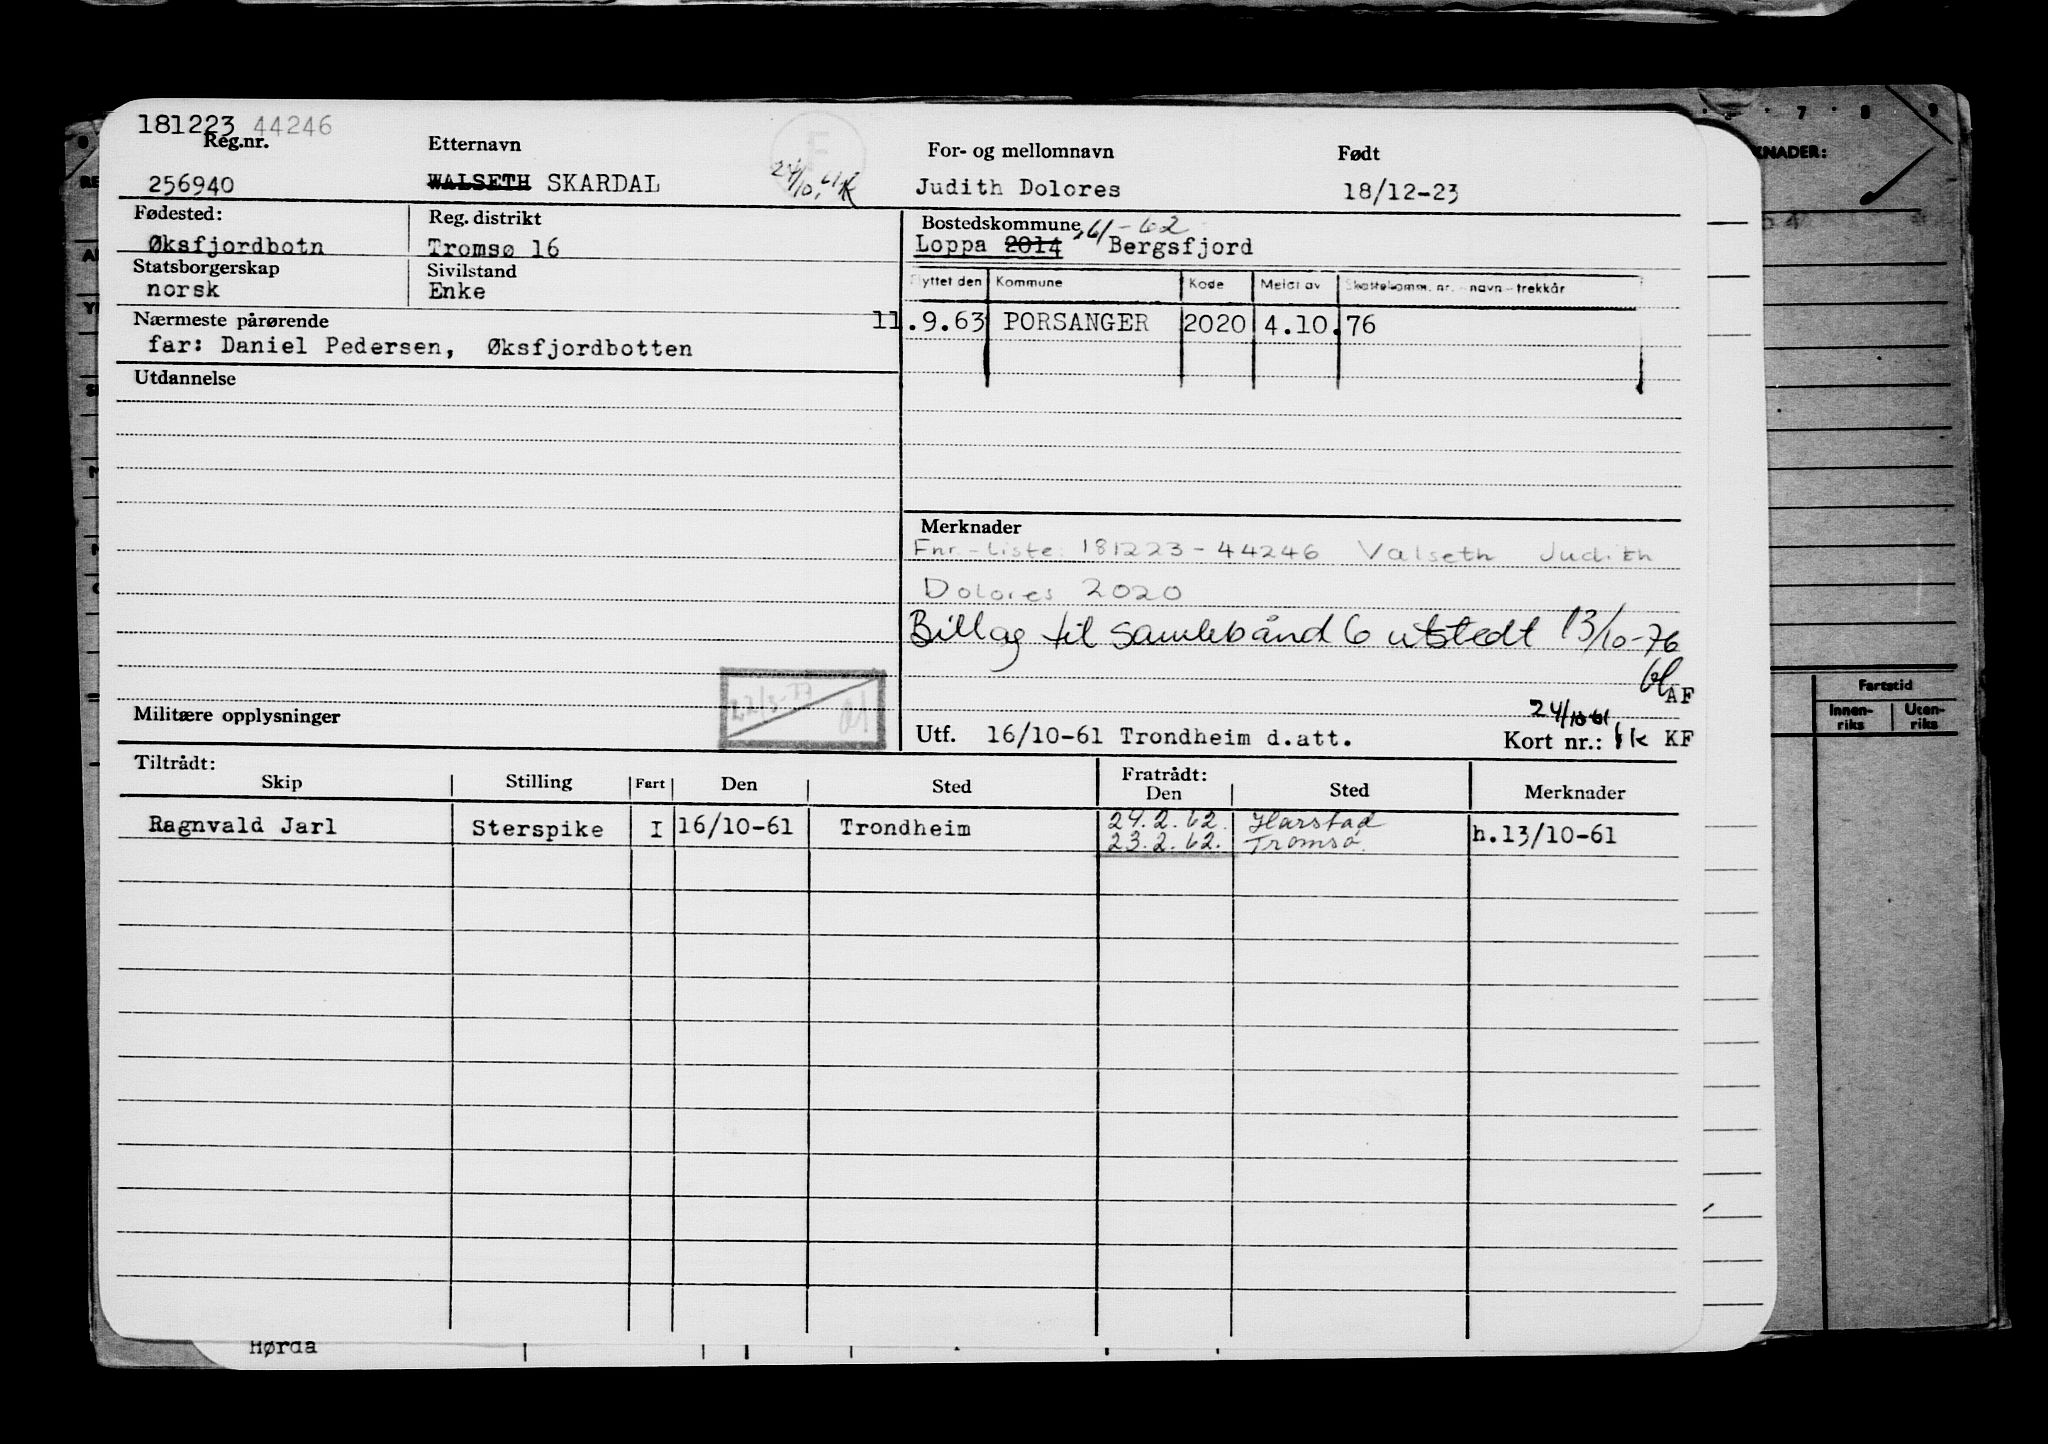 181223 44246
Reg.nr.
Etternavn
For- og mellomnavn
Født
256940
WALSETH SKARDAL
24/10.61
Judith Dolores
18/12-23
Fødested:
Øksfjordbotn
Reg. distrikt
Tromsø 16
Bostedskommune 61-62
Loppa 2014 Bergsfjord
Statsborgerskap
norsk
Sivilstand
Enke
Flyttet den Kommune Kode Meldt av Skattekomm. nr. - navn - trekkår
11.9.63 PORSANGER 2020 4.10.76
Nærmeste pårørende
far: Daniel Pedersen, Øksfjordbotten
Utdannelse
Merknader
Fnr.-liste: 181223-44246 Valseth Judith
Dolores 2020
Billag til samlebånd 6 utstedt 13/10-76
AF
22/3-77
Militære opplysninger
24/10-61
Utf. 16/10-61 Trondheim d.att.
Kort nr.: 1k KF
Tiltrådt:
Skip Stilling Fart Den Sted
Fratrådt:
Den Sted Merknader
Ragnvald Jarl Sterspike I 16/10-61 Trondheim 24.2.62. Harstad h.13/10-61
23.2.62. Tromsø.
Hørda
7 8 9
KNADER:
Fartstid
Innen-riks Uten-riks